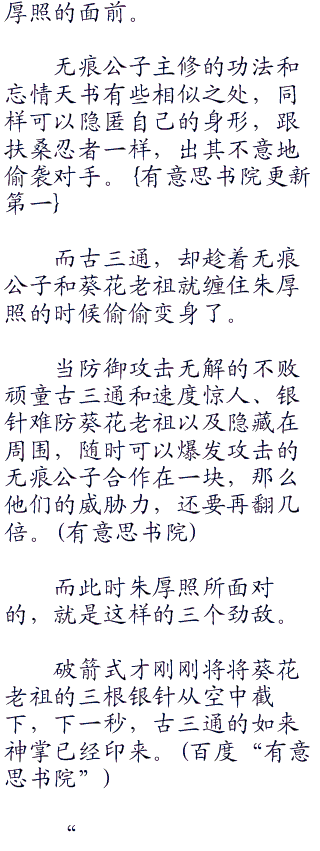 厚照的面前。
无痕公子主修的功法和
忘情天书有些相似之处，同
样可以隐匿自己的身形，跟
扶桑忍者一样，出其不意地
偷袭对手。{有意思书院更新
第一}
而古三通，却趁着无痕
公子和葵花老祖就缠住朱厚
照的时候偷偷变身了。
当防御攻击无解的不败
顽童古三通和速度惊人、银
针难防葵花老祖以及隐藏在
周围，随时可以爆发攻击的
无痕公子合作在一块，那么
他们的威胁力，还要再翻几
倍。(有意思书院)
而此时朱厚照所面对
的，就是这样的三个劲敌。
破箭式才刚刚将将葵花
老祖的三根银针从空中截
下，下一秒，古三通的如来
神掌已经印来。(百度“有意
思书院”)
“